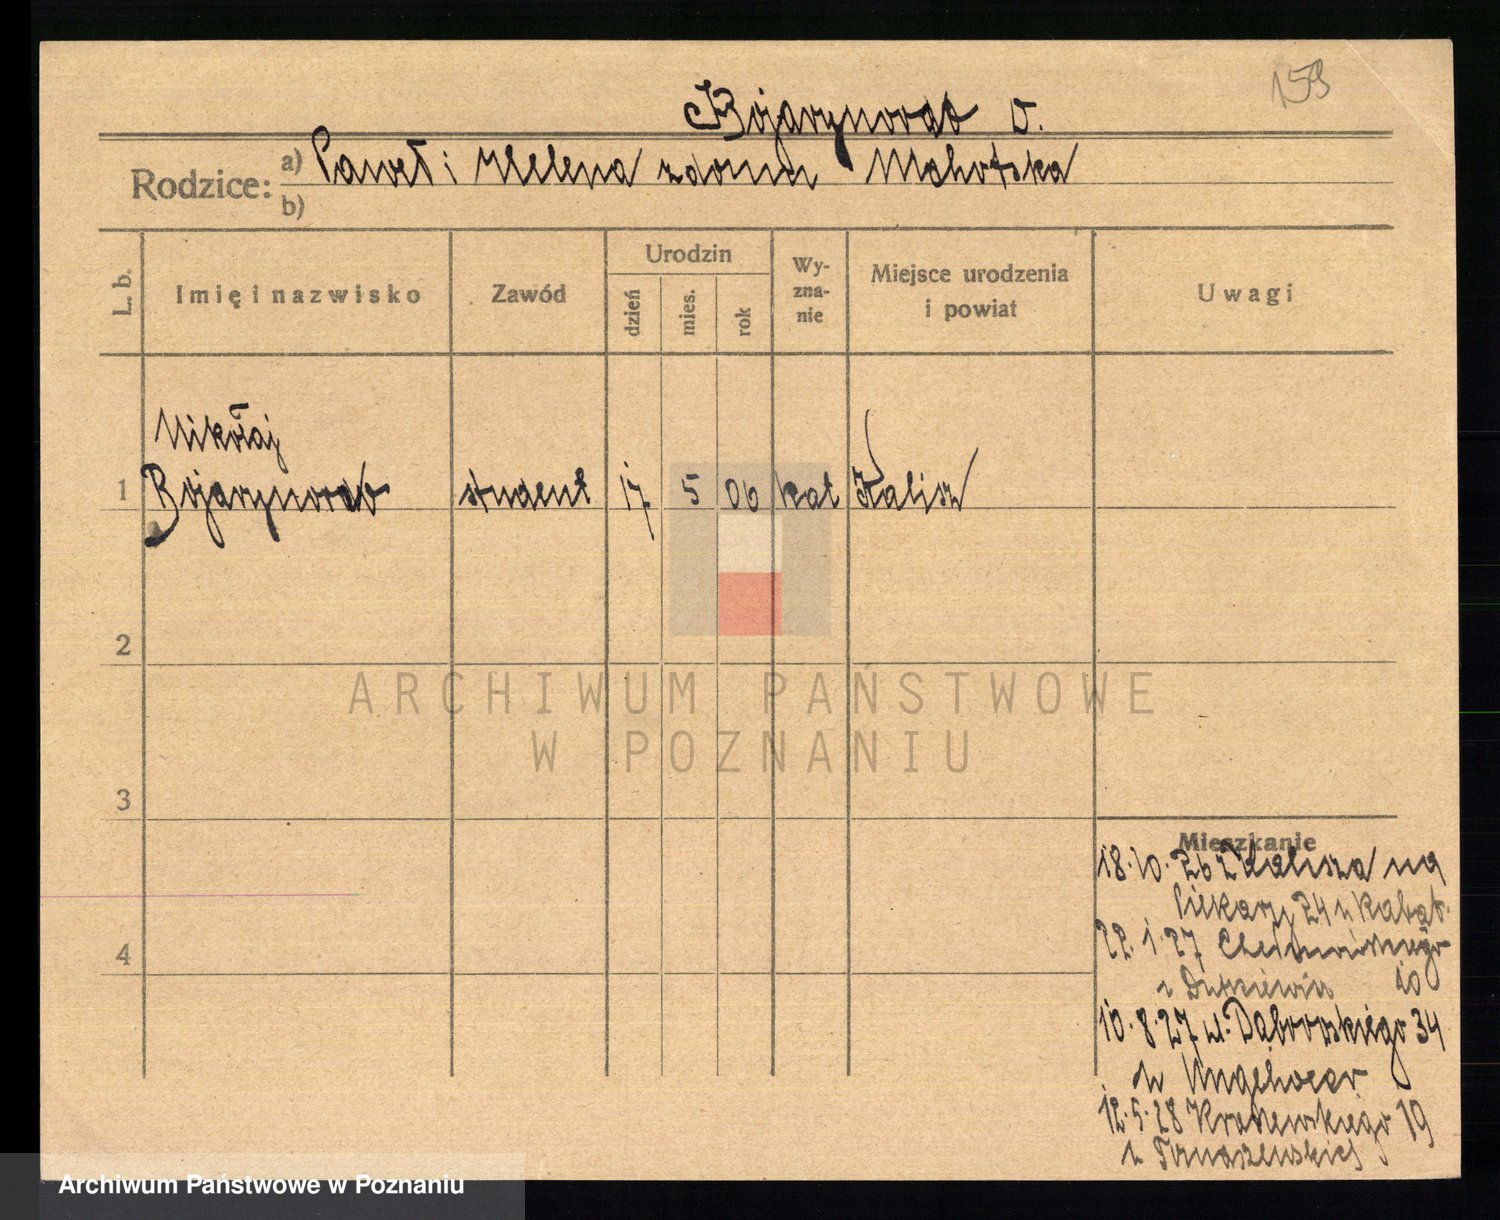 159
Bojarynowab v.
Rodzice: a) Paweł i Helena z domu
b)
L. b.
Imię i nazwisko
Zawód
Urodzin
dzień
mies.
rok
Wy-
zna-
nie
Miejsce urodzenia
i powiat
Uwagi
Mikołaj
1 student 17 5 06 kat Kalisz
2
ARCHIWUM PAŃSTWOWE
W POZNANIU
3
Mieszkanie
18.10.26 z Kalisza na
Piekary 24 u
4
22.1.27 10
10.8.27 ul. Dąbrowskiego 34
u
12.5.28 Kraszewskiego 19
u Tomaszewskiej
Archiwum Państwowe w Poznaniu